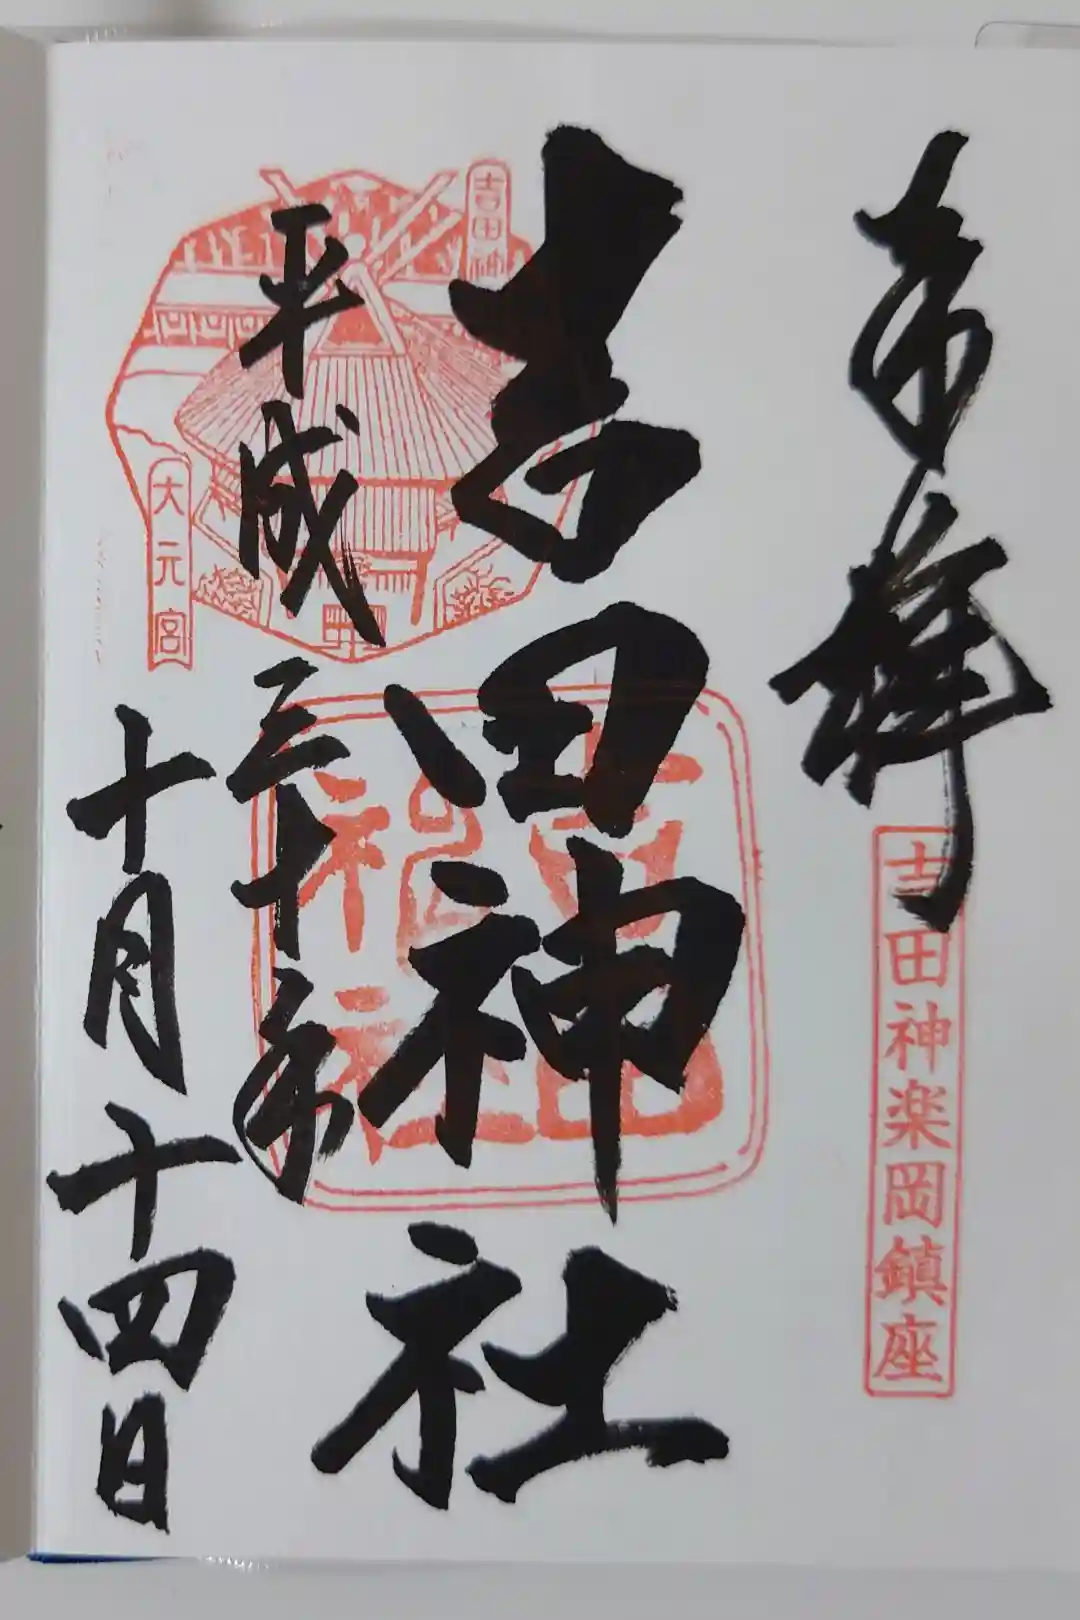 奉拝
吉田神楽岡鎮座
吉田神社
吉田神社
平成三十年
十月十四日
吉田神
大元宮